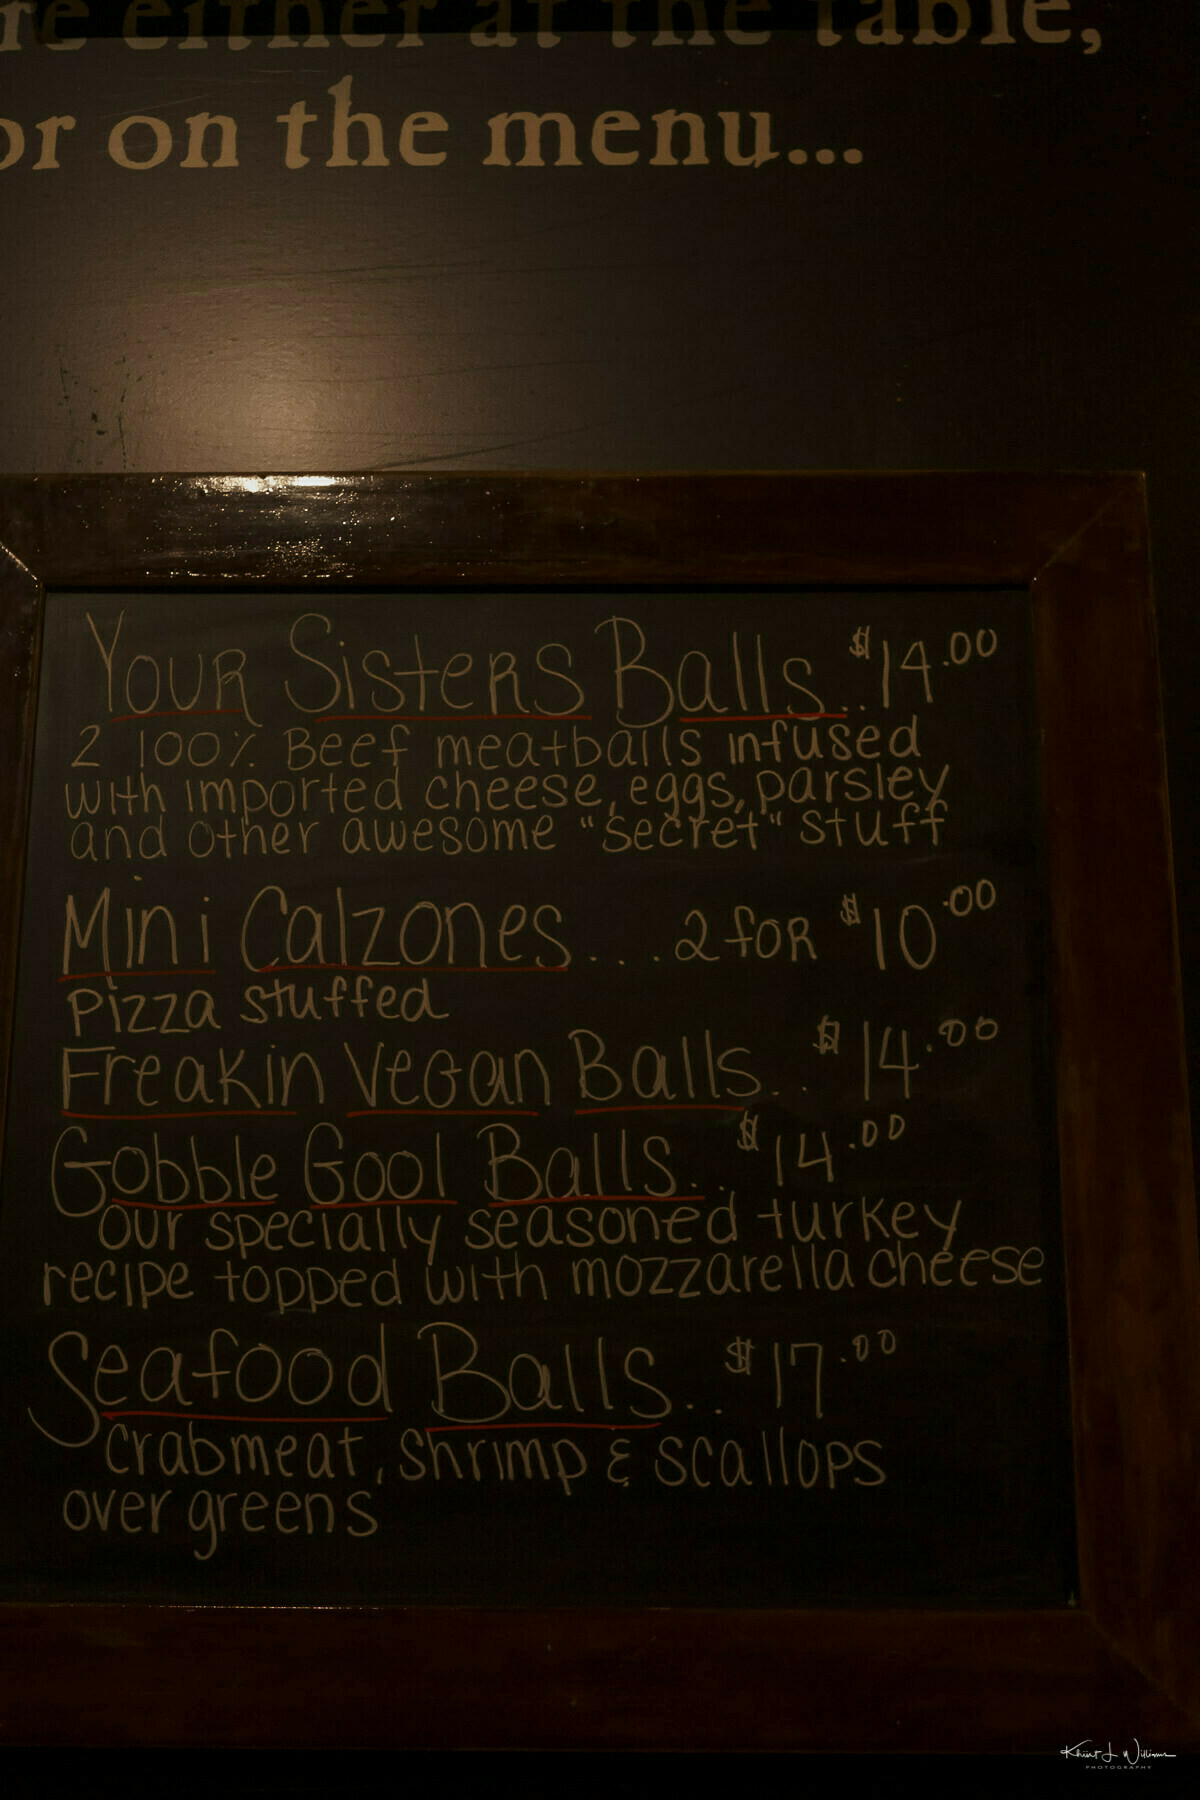 re either at the table,
or on the menu...
Your Sisters Balls..$14.00
2 100% Beef meatballs infused
with imported cheese, eggs, parsley
and other awesome "secret" stuff
Mini Calzones....2 for $10.00
pizza stuffed
Freakin Vegan Balls.. $14.00
Gobble Gool Balls.. $14.00
our specially seasoned turkey
recipe topped with mozzarella cheese
Seafood Balls.. $17.00
crabmeat, shrimp & scallops
over greens
Khürt L Williams
PHOTOGRAPHY